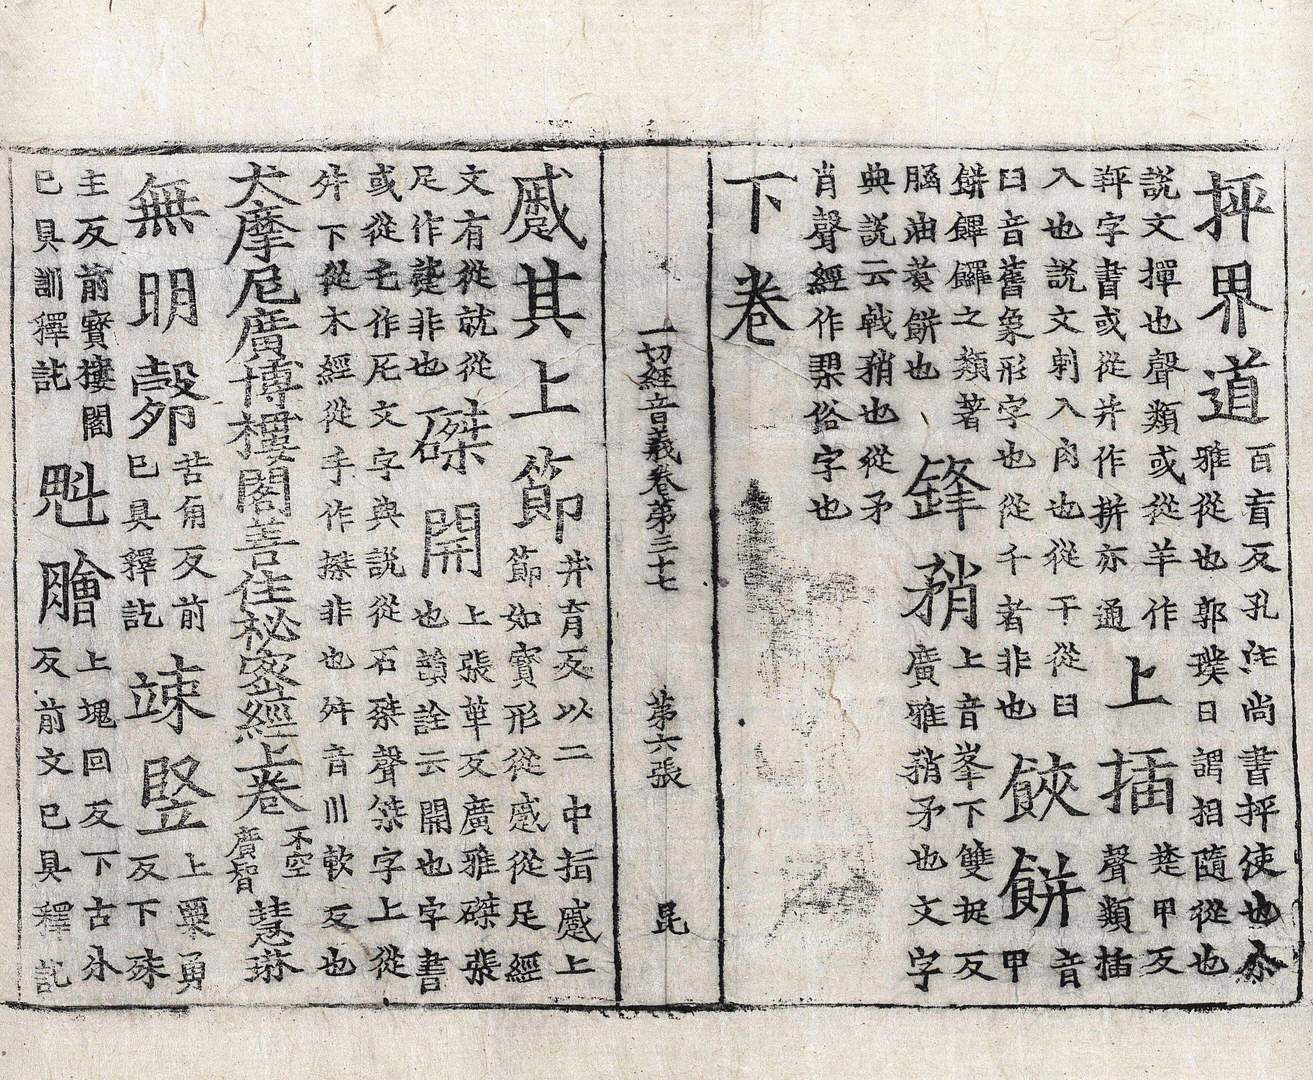 抨界道
百盲反孔注尚書抨使也尒
雅從也郭璞曰謂相隨從也
說文撣也聲類或從羊作
字書或從并作拼亦通
上插
楚甲反
聲類插
入也說文刺入肉也從干從臼
臼音舊象形字也從千者非也
餅
音
甲
餅饆饠之類著
腦油煑餅也
鋒矟
上音峯下雙捉反
廣雅矟矛也文字
典說云戟矟也從矛
肖聲經作槊俗字也
下卷
一切経音義卷第三十七 第六張 昆
戚其上節
并育反以二中指蹙上
節如寶形從慼從足經
文有從就從
足作蹵非也
磔開
上張革反廣雅磔張
也韻詮云開也字書
或從乇作厇文字典說從石桀聲桀字上從
舛下從木經從手作搩非也舛音川軟反也
大摩尼廣博樓閣善住秘密經上卷
不空
廣智
慧琳
無明㲉
苦角反前
已具釋訖
竦竪
上粟勇
反下殊
主反前寶樓閣
已具訓釋訖
魁膾
上塊回反下古外
反前文已具釋訖